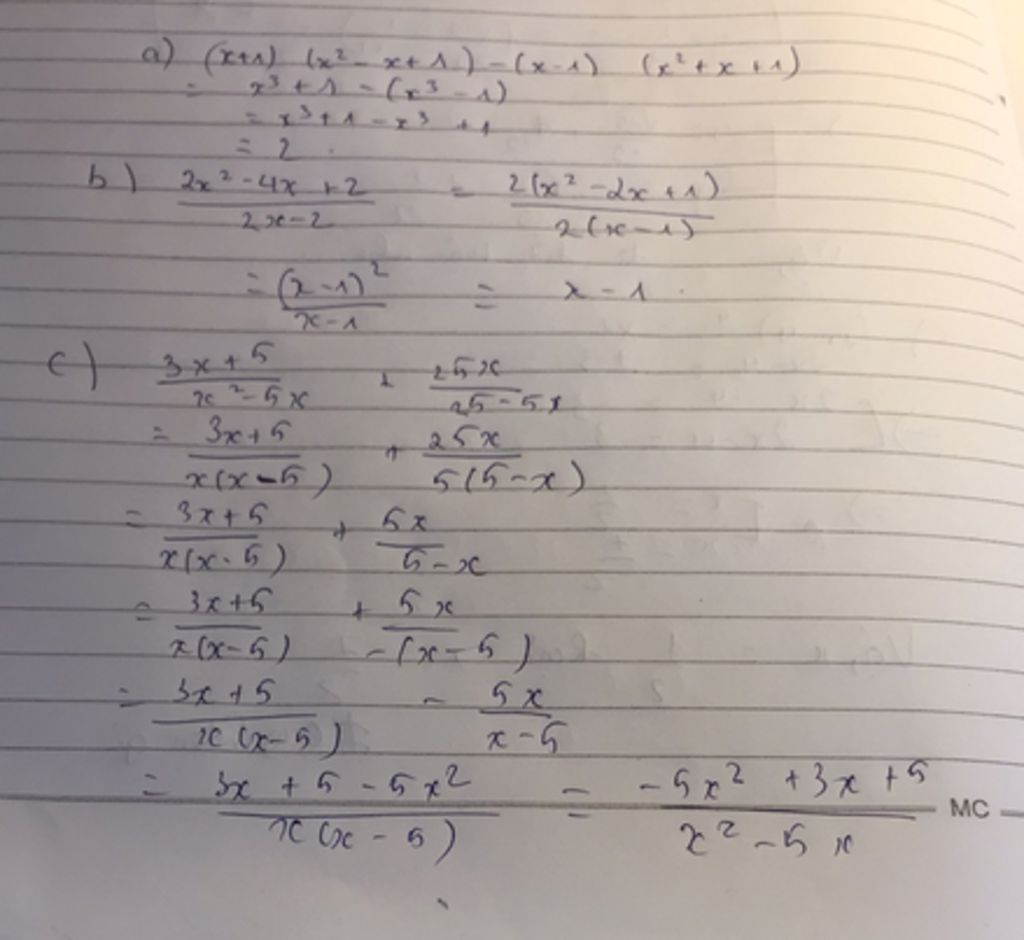 a) (x+1) (x² - x + 1) - (x-1) (x² + x + 1)
= x³ + 1 - (x³ - 1)
= x³ + 1 - x³ + 1
= 2.
b) (2x² - 4x + 2)/(2x - 2) = 2(x² - 2x + 1)/2(x - 1)
= (x - 1)²/(x - 1) = x - 1.
c) (3x + 5)/(x² - 5x) + 25x/(25 - 5x)
= (3x + 5)/x(x - 5) + 25x/5(5 - x)
= (3x + 5)/x(x - 5) + 5x/(5 - x)
= (3x + 5)/x(x - 5) + 5x/-(x - 5)
= (3x + 5)/x(x - 5) - 5x/(x - 5)
= (3x + 5 - 5x²)/x(x - 5) = (-5x² + 3x + 5)/(x² - 5x)
MC